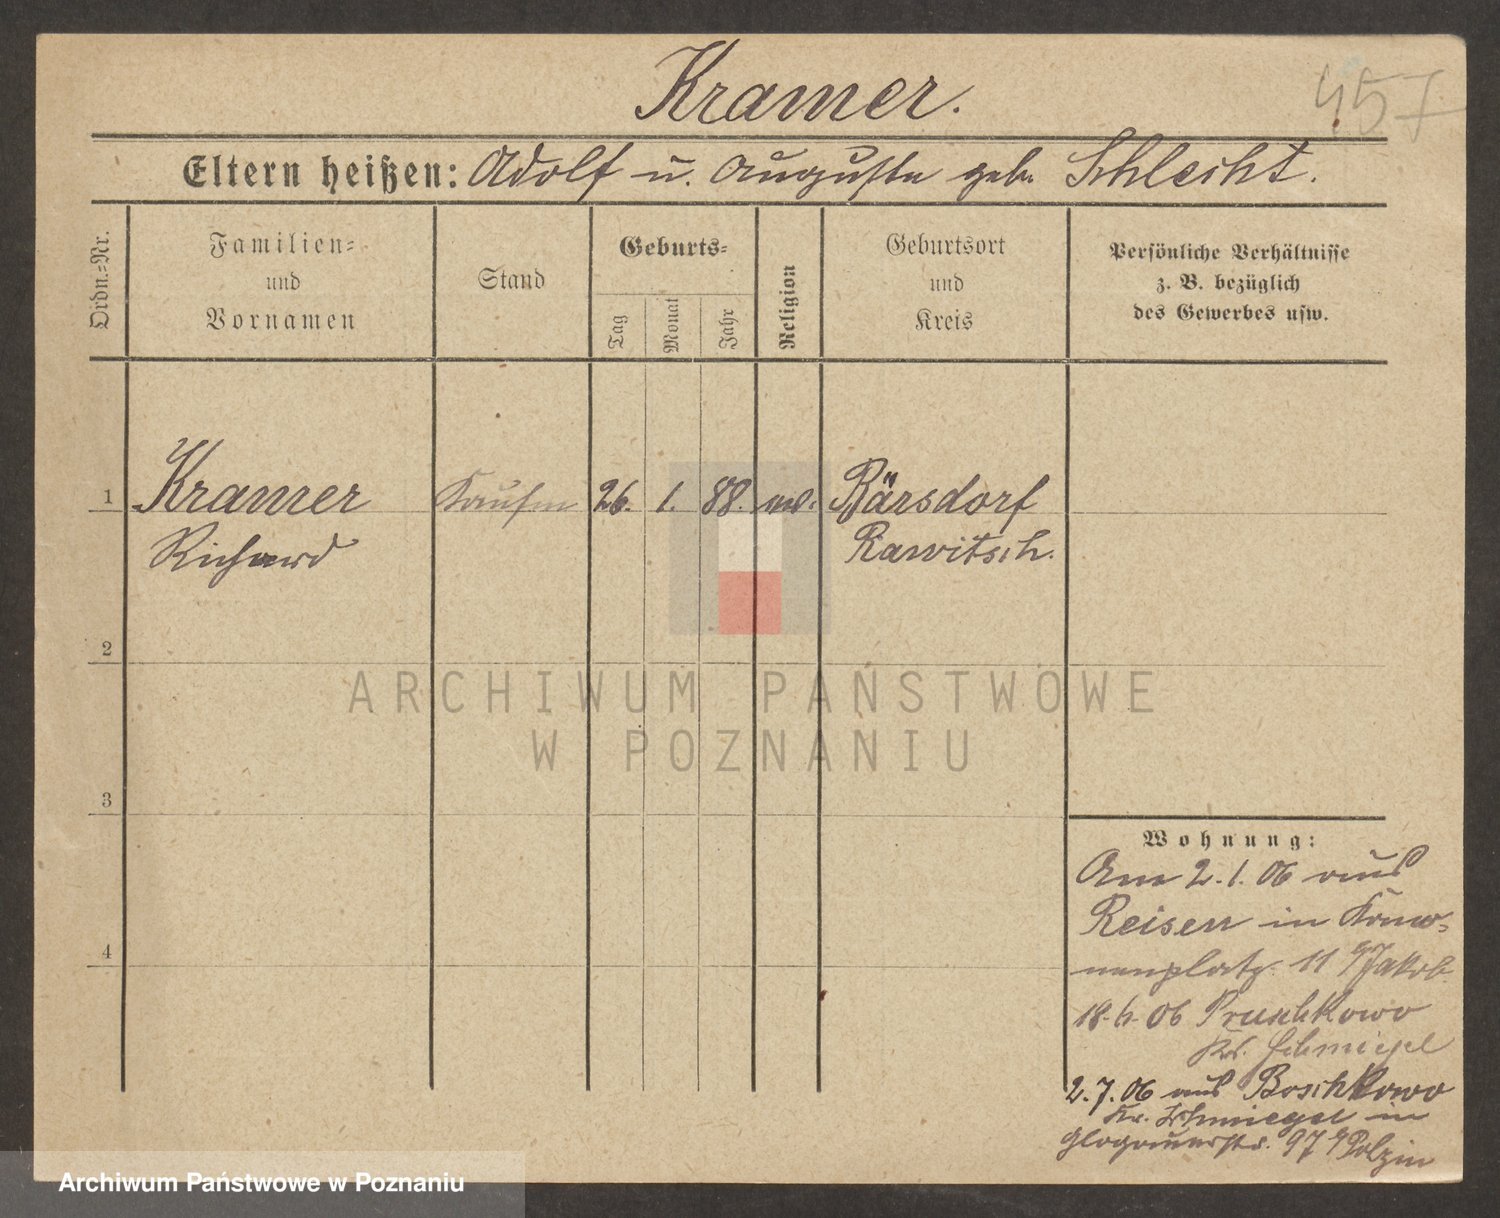 Kramer.
457
Eltern heißen: Adolf u. Auguste geb. Schlecht.
Ordn.-Nr.
Familien-
und
Vornamen
Stand
Geburts-
Tag
Monat
Jahr
Religion
Geburtsort
und
Kreis
Persönliche Verhältnisse
z. B. bezüglich
des Gewerbes usw.
1 Kramer Kaufm 26. 1. 88. Bärsdorf
Richard Rawitsch.
2
3
4
ARCHIWUM PAŃSTWOWE
W POZNANIU
Wohnung:
Am 2.1.06 aus
Reisen in
11 Jakob
18.6.06 Pruschkowo
Kr. Schmiegel
2.7.06 aus Boschkowo
Kr. Schmiegel in
Glogauerstr. 97 Polzin
Archiwum Państwowe w Poznaniu